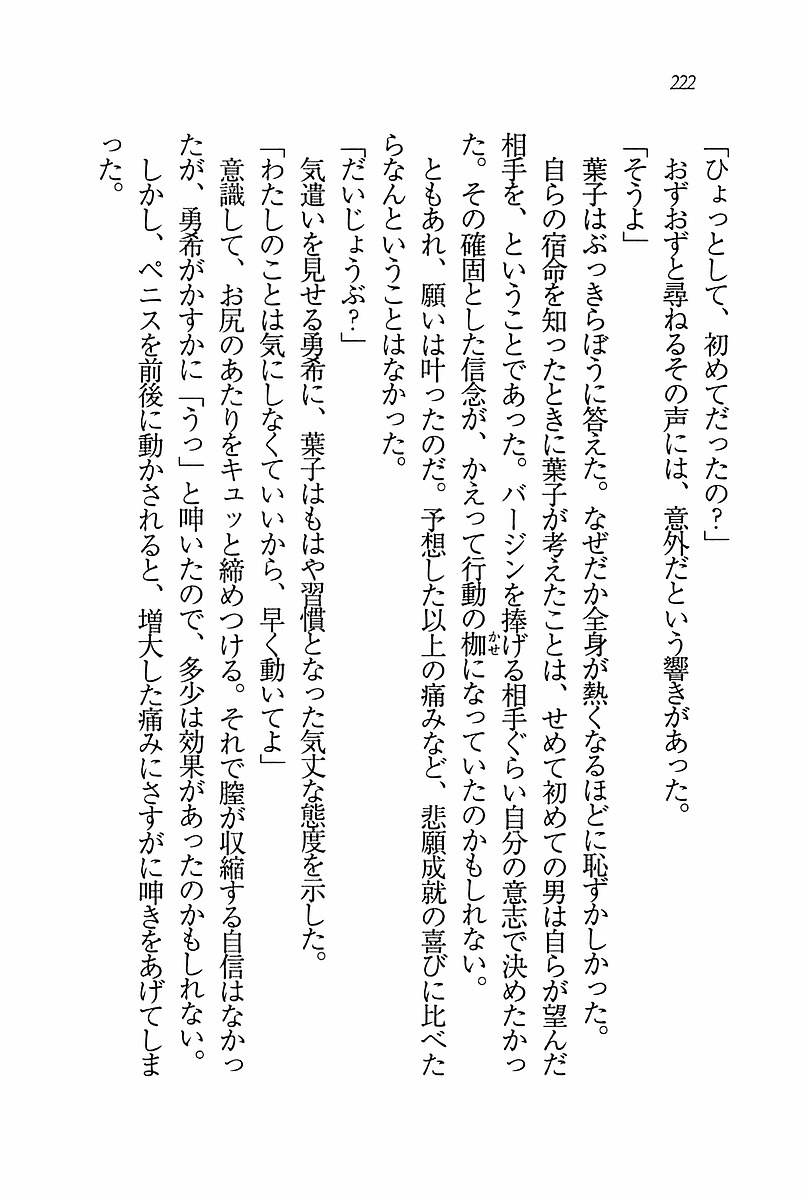 222
「ひょっとして、初めてだったの？」
おずおずと尋ねるその声には、意外だという響きがあった。
「そうよ」
葉子はぶっきらぼうに答えた。なぜだか全身が熱くなるほどに恥ずかしかった。
自らの宿命を知ったときに葉子が考えたことは、せめて初めての男は自らが望んだ
相手を、ということであった。バージンを捧げる相手ぐらい自分の意志で決めたかっ
た。その確固とした信念が、かえって行動の枷かせになっていたのかもしれない。
ともあれ、願いは叶ったのだ。予想した以上の痛みなど、悲願成就の喜びに比べた
らなんということはなかった。
「だいじょうぶ？」
気遣いを見せる勇希に、葉子はもはや習慣となった気丈な態度を示した。
「わたしのことは気にしなくていいから、早く動いてよ」
意識して、お尻のあたりをキュッと締めつける。それで膣が収縮する自信はなかっ
たが、勇希がかすかに「うっ」と呻いたので、多少は効果があったのかもしれない。
しかし、ペニスを前後に動かされると、増大した痛みにさすがに呻きをあげてしま
った。